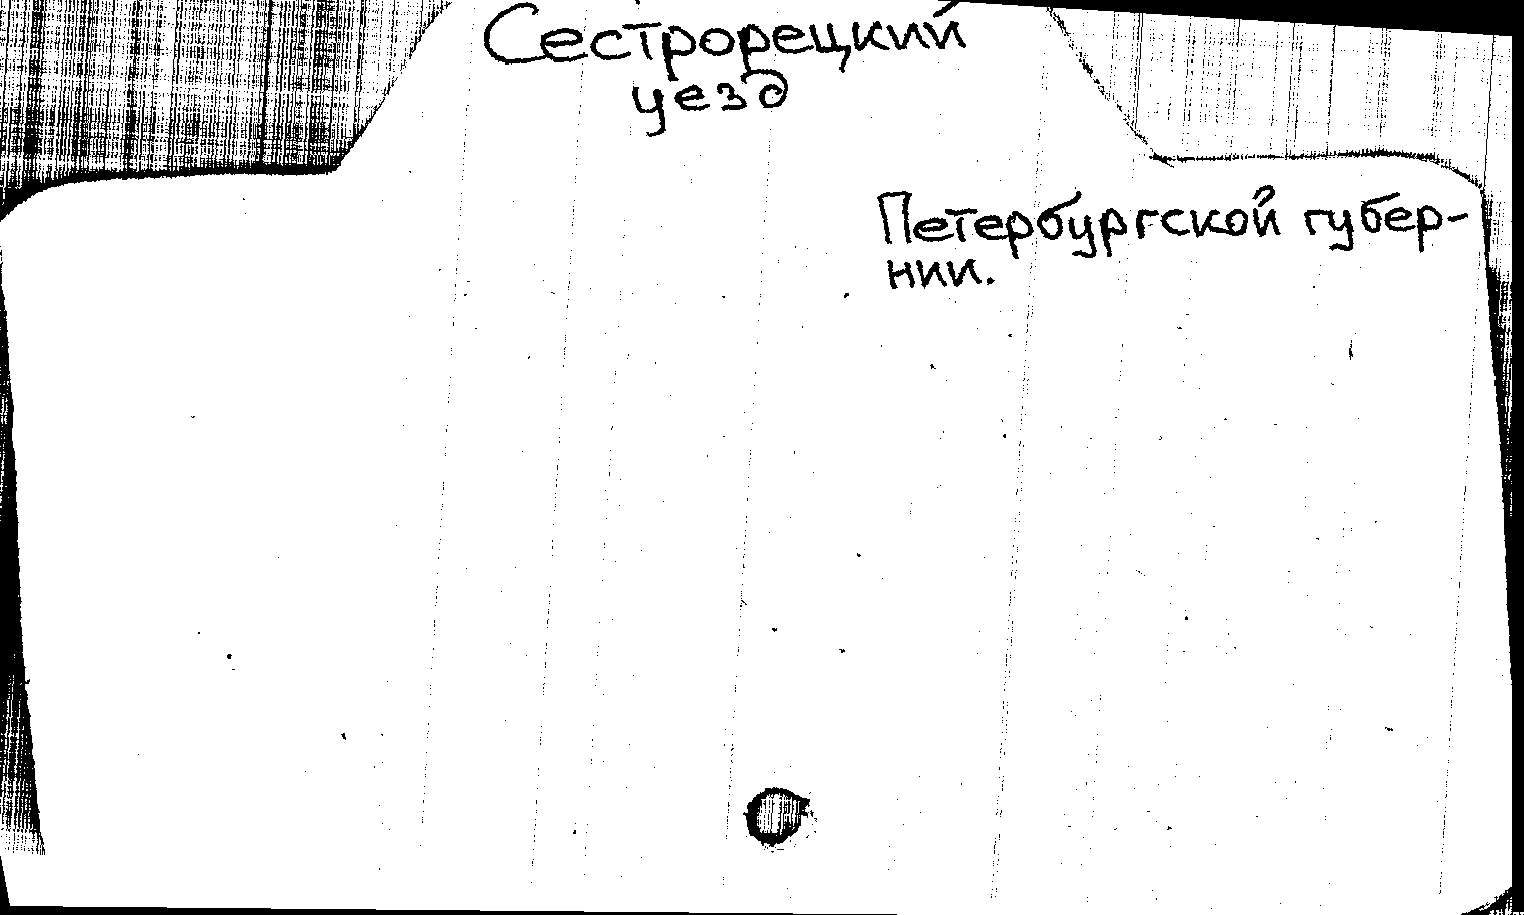 Сестрорецкий
уезд
Петербургской губер-
нии.